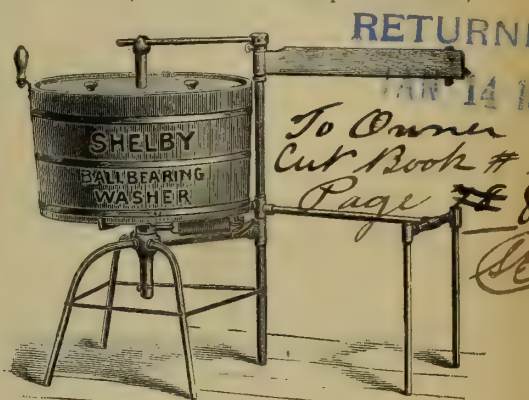 RETURN
JAN 14
To Owner
Cut Book #
Page
SHELBY
BALL BEARING
WASHER